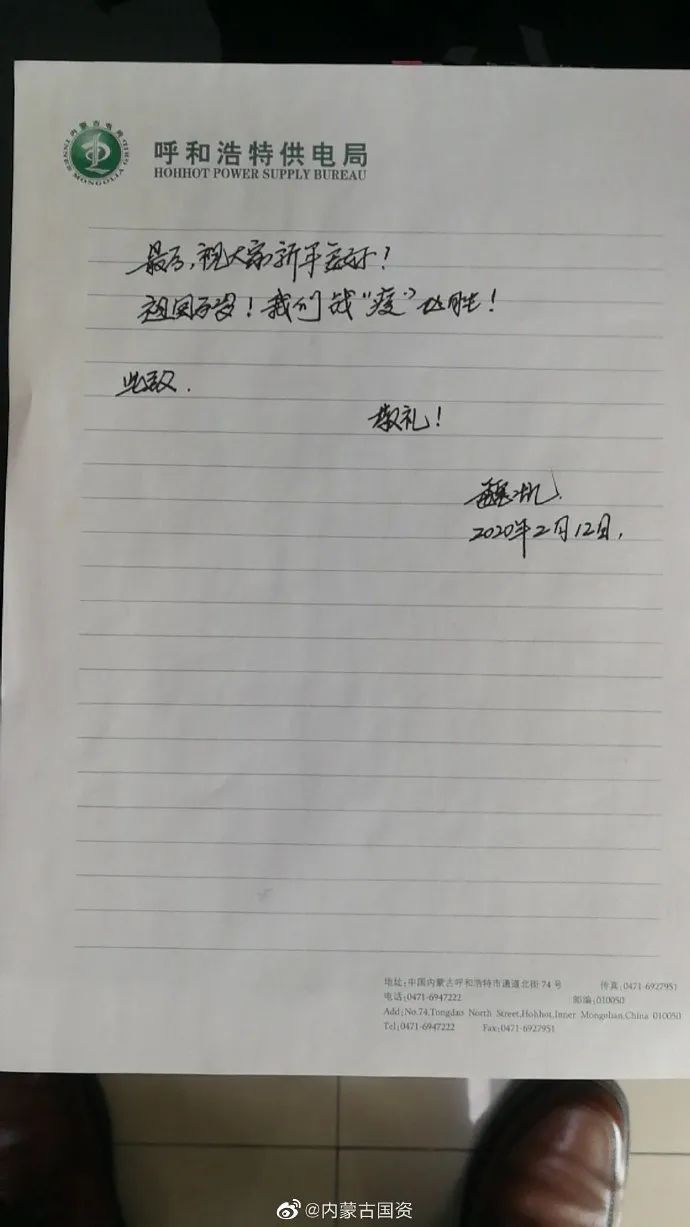 内蒙古电网
INNER MONGOLIA GRID
呼和浩特供电局
HOHHOT POWER SUPPLY BUREAU
最后,祝大家新年
祖国万岁!我们战“疫”必胜!
此致.
敬礼!
2020年2月12日.
地址:中国内蒙古呼和浩特市通道北街74号 传真:0471-6927951
电话:0471-6947222 邮编:010050
Add:No.74,Tongdao North Street,Hohhot,Inner Mongohan,China 010050
Tel:0471-6947222 Fax:0471-6927951
@内蒙古国资